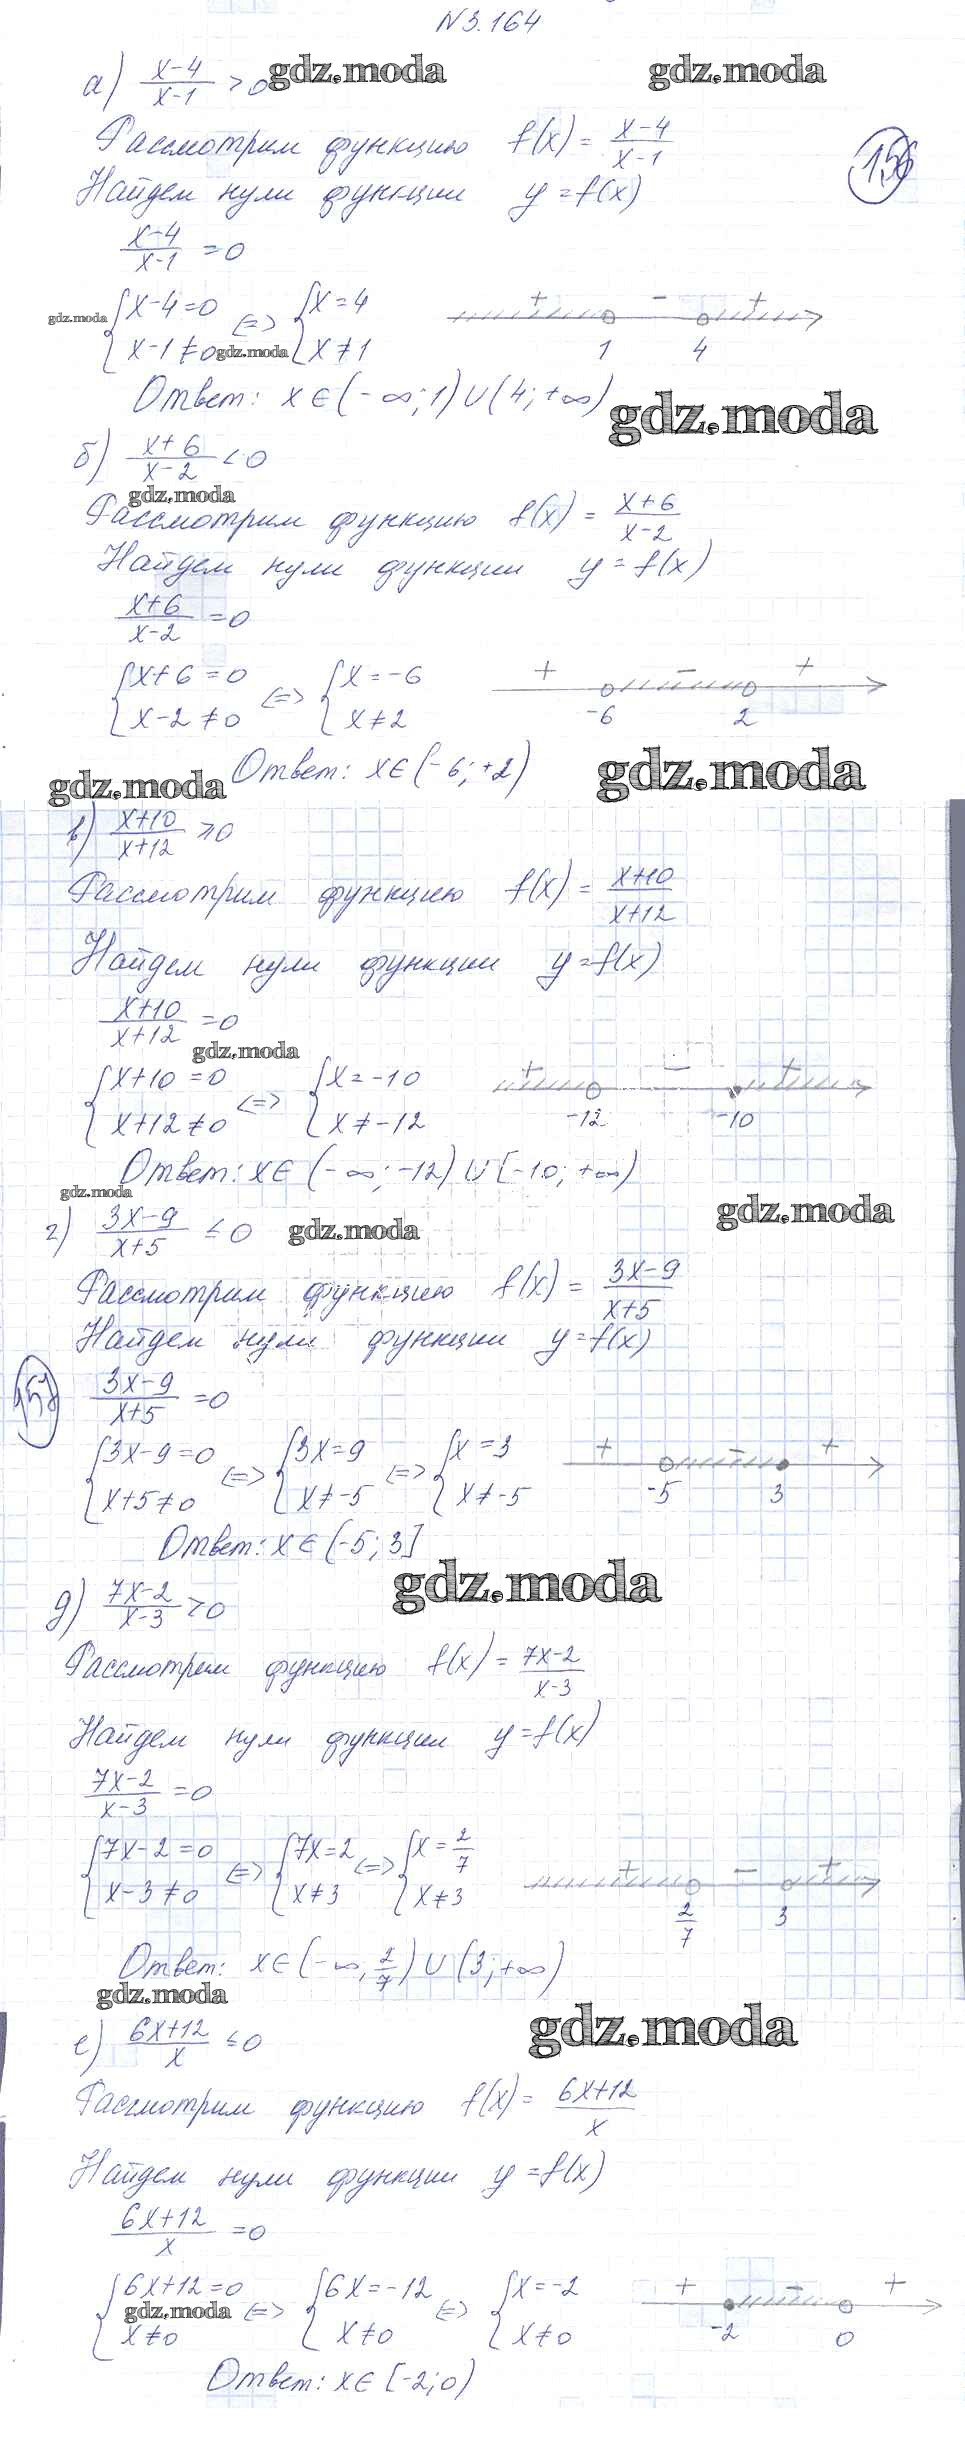 N 3.164
а) (x-4)/(x-1) > 0 gdz.moda gdz.moda
Рассмотрим функцию f(x) = (x-4)/(x-1)
156
Найдем нули функции y = f(x)
(x-4)/(x-1) = 0
gdz.moda { x-4=0 <=> { x=4 + - +
{ x-1≠0 gdz.moda { x≠1 1 4
Ответ: x∈(-∞; 1)∪(4; +∞) gdz.moda
б) (x+6)/(x-2) < 0
gdz.moda
Рассмотрим функцию f(x) = (x+6)/(x-2)
Найдем нули функции y = f(x)
(x+6)/(x-2) = 0
{ x+6=0 <=> { x=-6 + - +
{ x-2≠0 { x≠2 -6 2
gdz.moda Ответ: x∈(-6; +2) gdz.moda
в) (x+10)/(x+12) ≥ 0
Рассмотрим функцию f(x) = (x+10)/(x+12)
Найдем нули функции y = f(x)
(x+10)/(x+12) = 0
gdz.moda
{ x+10=0 <=> { x=-10 + - +
{ x+12≠0 { x≠-12 -12 -10
Ответ: x∈(-∞; -12)∪[-10; +∞)
gdz.moda
г) (3x-9)/(x+5) ≤ 0 gdz.moda gdz.moda
Рассмотрим функцию f(x) = (3x-9)/(x+5)
Найдем нули функции y = f(x)
157
(3x-9)/(x+5) = 0
{ 3x-9=0 <=> { 3x=9 <=> { x=3 + - +
{ x+5≠0 { x≠-5 { x≠-5 -5 3
Ответ: x∈(-5; 3]
gdz.moda
д) (7x-2)/(x-3) > 0
Рассмотрем функцию f(x) = (7x-2)/(x-3)
Найдем нули функции y = f(x)
(7x-2)/(x-3) = 0
{ 7x-2=0 <=> { 7x=2 <=> { x=2/7 + - +
{ x-3≠0 { x≠3 { x≠3 2/7 3
Ответ: x∈(-∞; 2/7)∪(3; +∞)
gdz.moda gdz.moda
е) (6x+12)/x ≤ 0
Рассмотрим функцию f(x) = (6x+12)/x
Найдем нули функции y = f(x)
(6x+12)/x = 0
{ 6x+12=0 <=> { 6x=-12 <=> { x=-2 + - +
gdz.moda
{ x≠0 { x≠0 { x≠0 -2 0
Ответ: x∈[-2; 0)